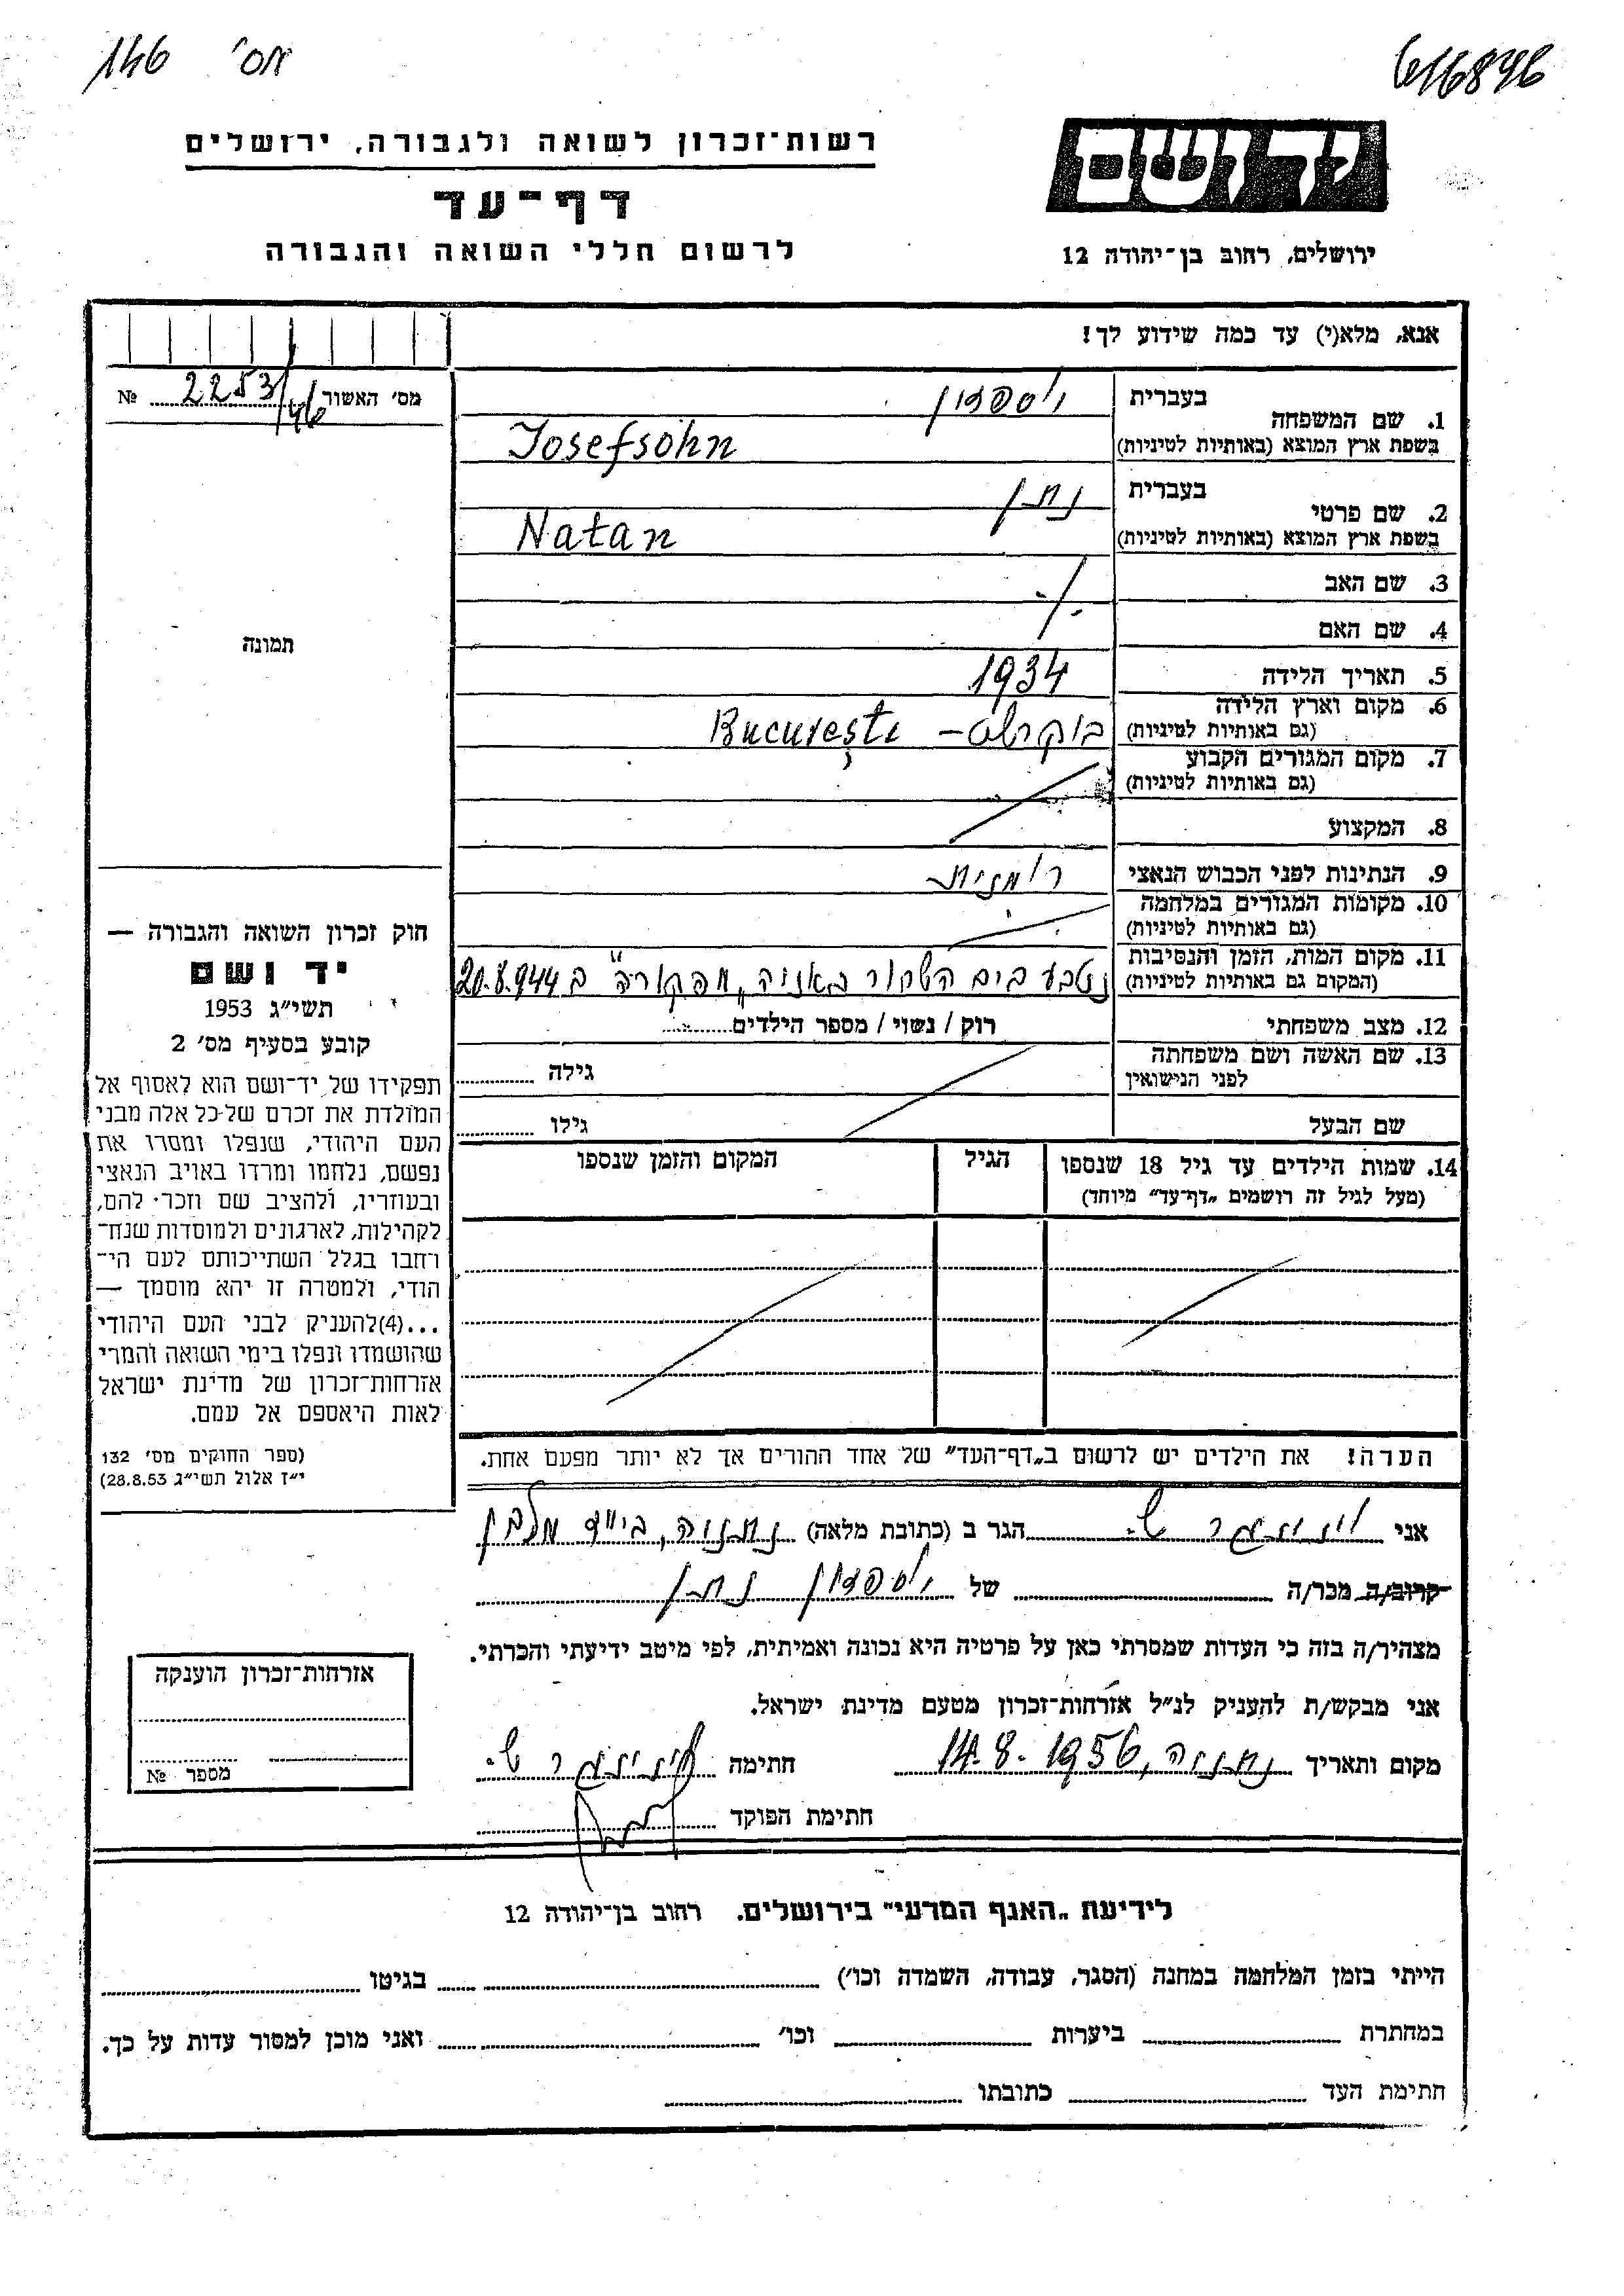 616846
אס' 146
יד ושם
ירושלים, רחוב בן־יהודה 12
רשות־זכרון לשואה ולגבורה, ירושלים
דף־עד
לרשום חללי השואה והגבורה
אנא, מלא(י) עד כמה שידוע לך!
מס' האשור 2253/46 №
תמונה
1. שם המשפחה
בעברית יוספזון
בשפת ארץ המוצא (באותיות לטיניות) Josefsohn
2. שם פרטי
בעברית נתן
בשפת ארץ המוצא (באותיות לטיניות) Natan
3. שם האב
4. שם האם
5. תאריך הלידה 1934
6. מקום וארץ הלידה
(גם באותיות לטיניות) בוקרשט – Bucureşti
7. מקום המגורים הקבוע
(גם באותיות לטיניות)
8. המקצוע
9. הנתינות לפני הכבוש הנאצי רומנית
10. מקומות המגורים במלחמה
(גם באותיות לטיניות)
11. מקום המות, הזמן והנסיבות
(המקום גם באותיות לטיניות) נטבע בים השחור באניה „מפקורה" ב 20.8.944
12. מצב משפחתי רוק / נשוי / מספר הילדים
13. שם האשה ושם משפחתה
לפני הנישואין גילה
שם הבעל גילו
14. שמות הילדים עד גיל 18 שנספו
(מעל לגיל זה רושמים „דף־עד" מיוחד)
הגיל
המקום והזמן שנספו
הערה! את הילדים יש לרשום ב„דף־העד" של אחד ההורים אך לא יותר מפעם אחת.
חוק זכרון השואה והגבורה —
יד ושם
תשי״ג 1953
קובע בסעיף מס' 2
תפקידו של יד־ושם הוא לאסוף אל
המולדת את זכרם של כל אלה מבני
העם היהודי, שנפלו ומסרו את
נפשם, נלחמו ומרדו באויב הנאצי
ובעוזריו, ולהציב שם וזכר להם,
לקהילות, לארגונים ולמוסדות שנח־
רחבו בגלל השתייכותם לעם הי־
הודי, ולמטרה זו יהא מוסמך —
...(4)להעניק לבני העם היהודי
שהושמדו ונפלו בימי השואה והמרי
אזרחות־זכרון של מדינת ישראל
לאות היאספם אל עמם.
(ספר החוקים מס' 132
י״ז אלול תשי״ג 28.8.53)
אני ש. הגר ב (כתובת מלאה) נתניה, בי״ס מלבן
קרוב/ה מכר/ה של יוספזון נתן
מצהיר/ה בזה כי העדות שמסרתי כאן על פרטיה היא נכונה ואמיתית, לפי מיטב ידיעתי והכרתי.
אני מבקש/ת להעניק לנ״ל אזרחות־זכרון מטעם מדינת ישראל.
מקום ותאריך נתניה, 14.8.1956 חתימה ש.
חתימת הפוקד
אזרחות־זכרון הוענקה
מספר №
לידיעת „האגף המדעי" בירושלים. רחוב בן־יהודה 12
הייתי בזמן המלחמה במחנה (הסגר, עבודה, השמדה וכו') בגיטו
במחתרת ביערות וכו' ואני מוכן למסור עדות על כך.
חתימת העד כתובתו